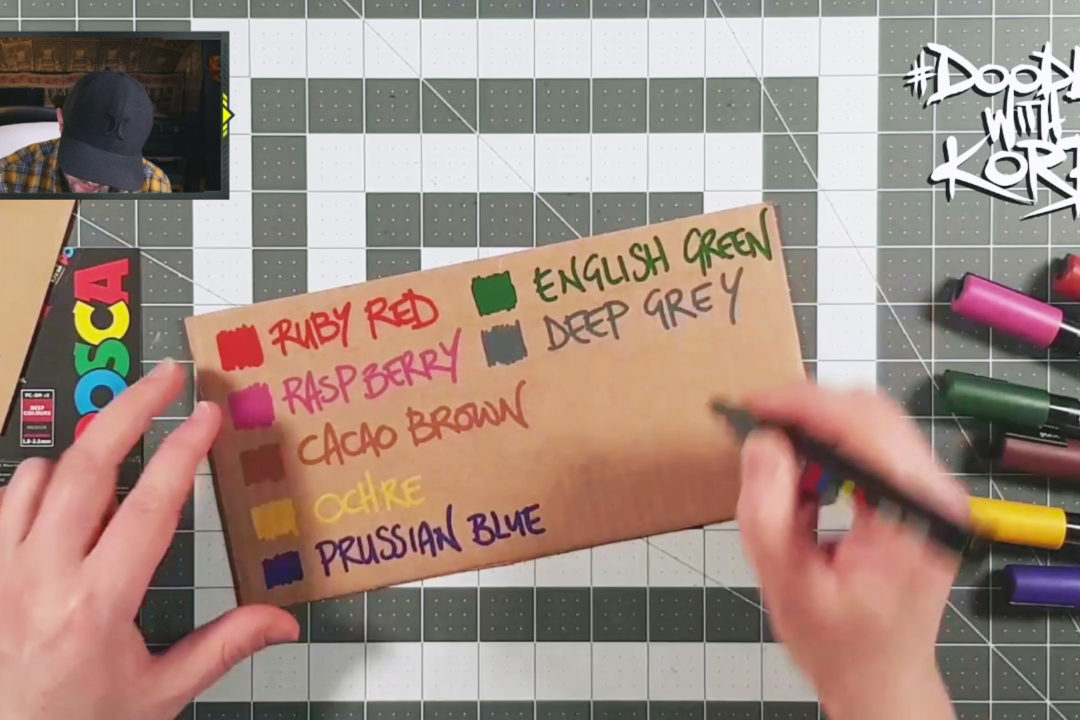 #DOODL
WITH
KORP
POSCA
PC-5M x8
DEEP
COLOURS
MEDIUM
1.8-2.5mm
RUBY RED
RASPBERRY
CACAO BROWN
OCHRE
PRUSSIAN BLUE
ENGLISH GREEN
DEEP GREY